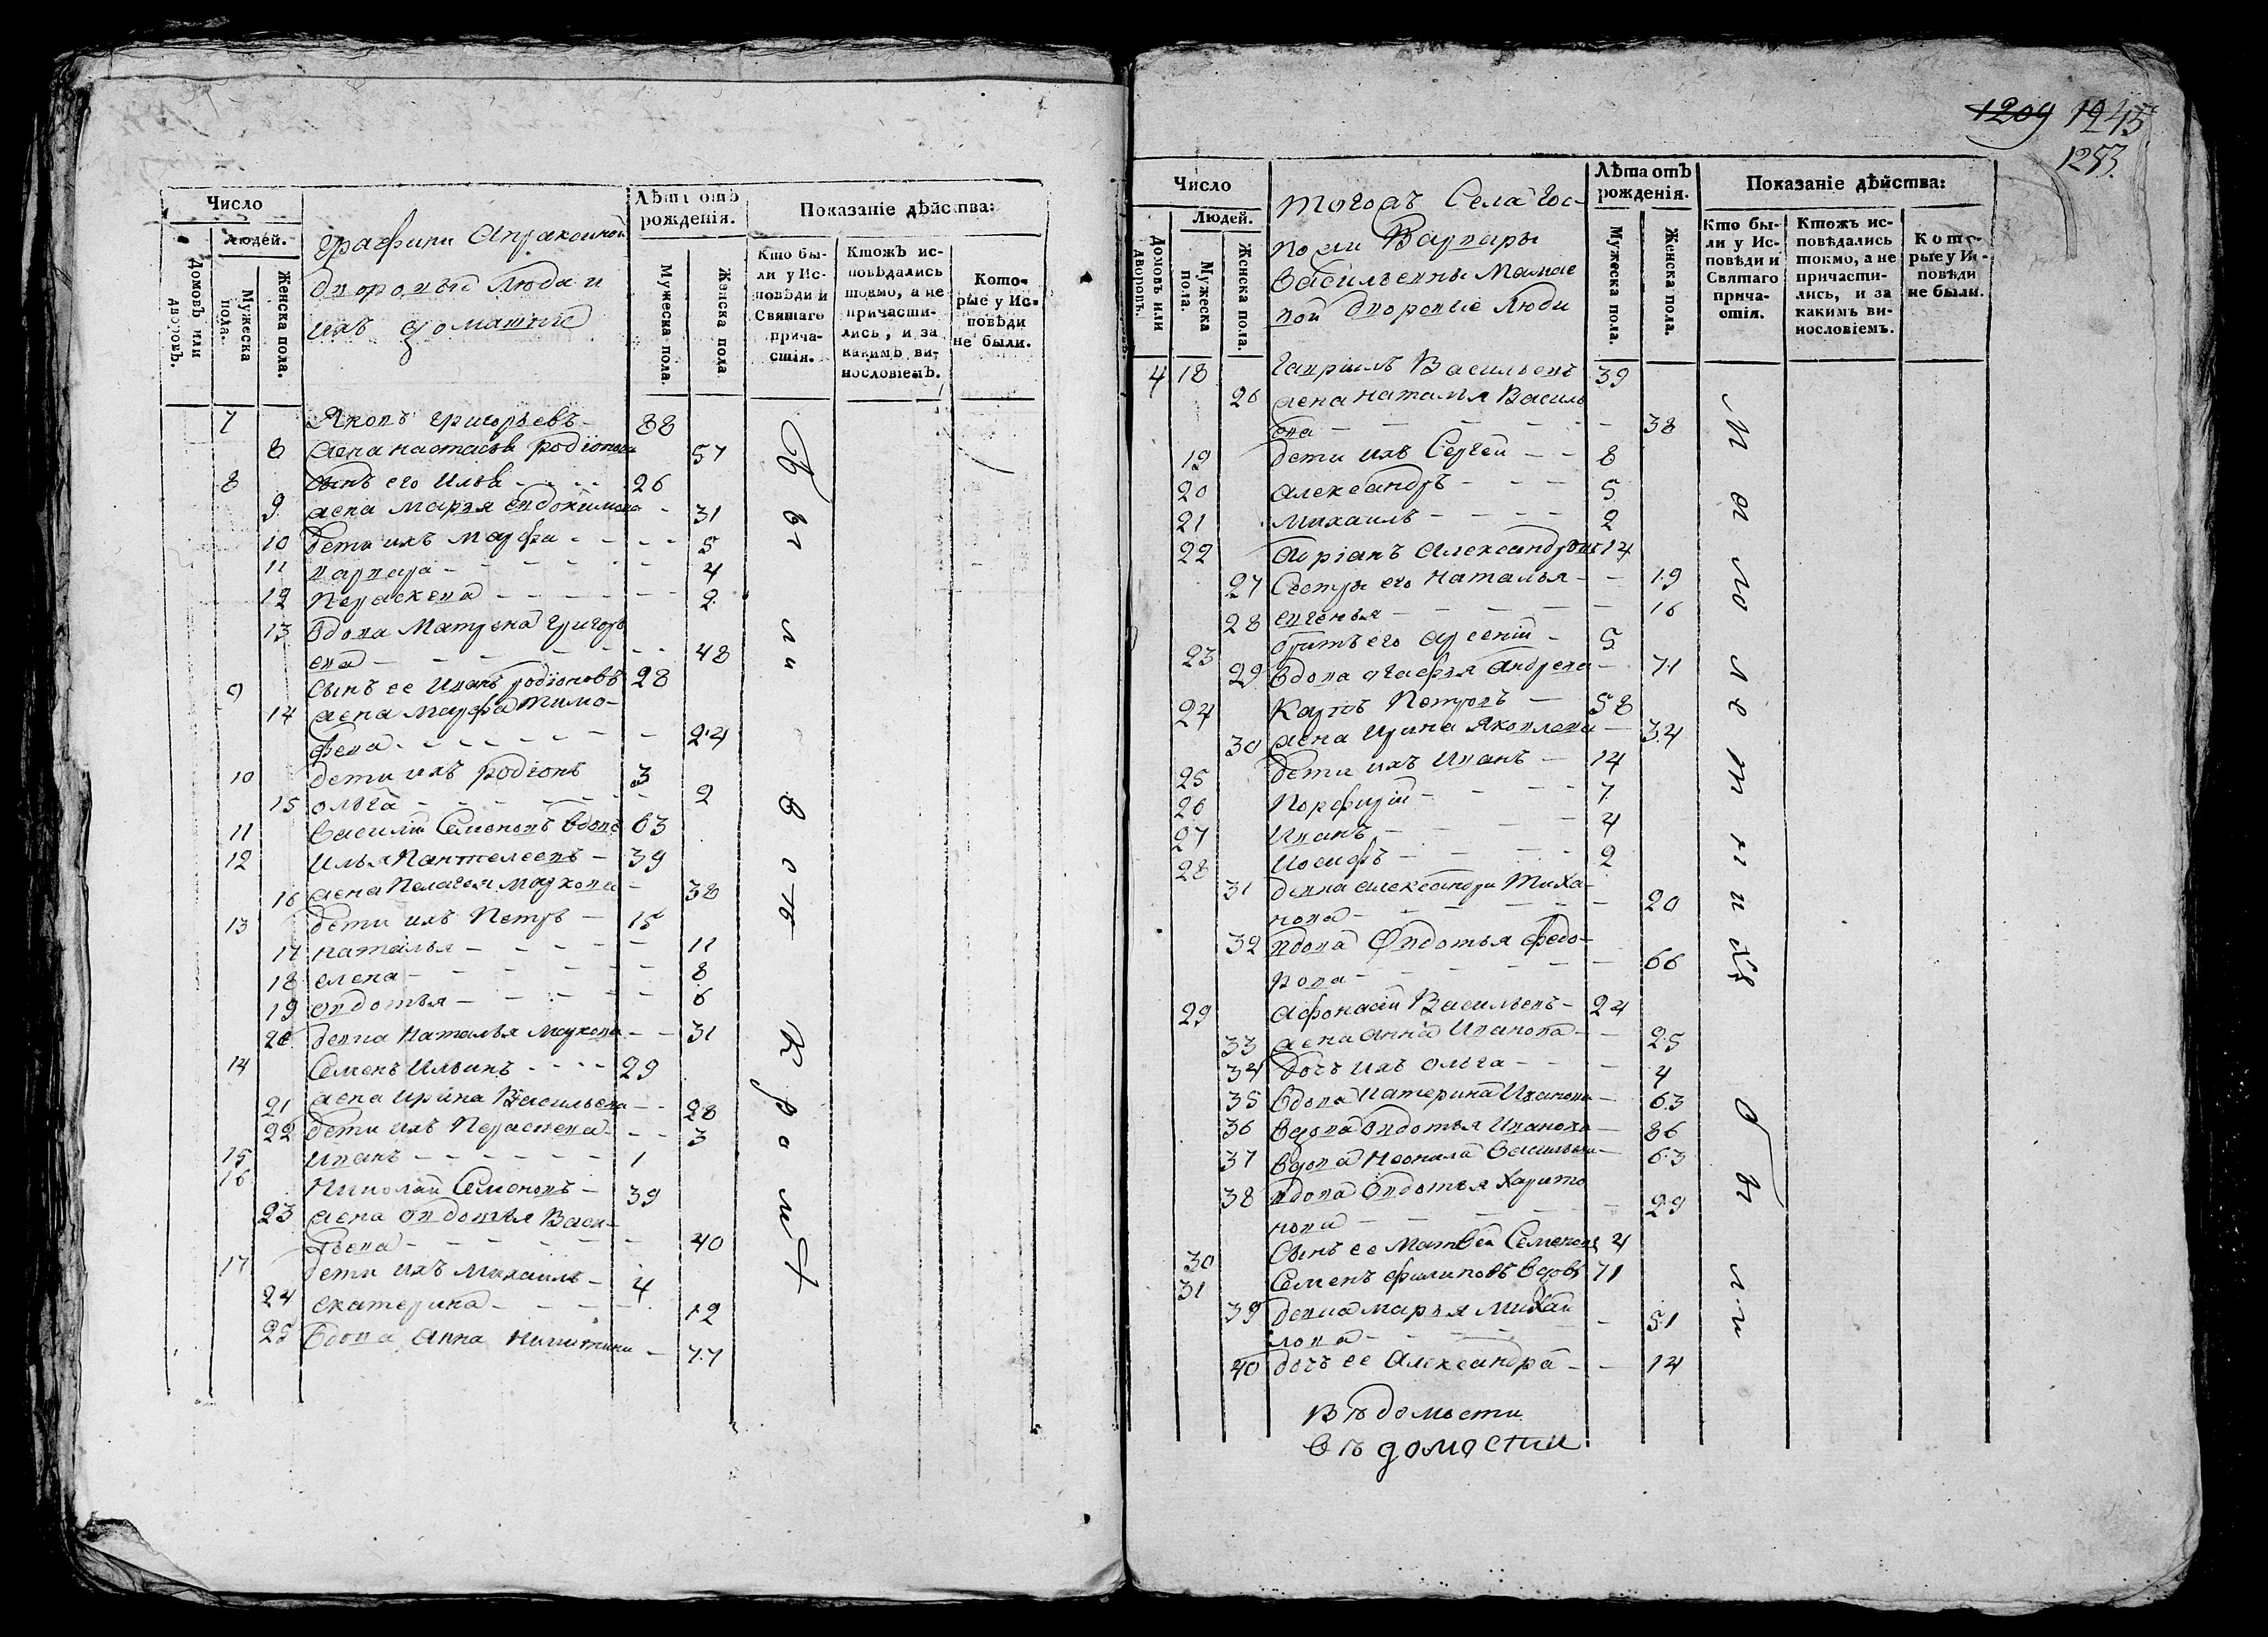 Число
Людей.
Домовъ или дворовъ.
Мужеска пола.
Женска пола.
Графини Апраксиной
дворовыя люди и
ихъ домашние
Лѣта отъ рожденія.
Мужеска пола.
Женска пола
Показаніе дѣйства:
Кто были у Исповѣди и Святаго причастія.
Ктожъ исповѣдались токмо, а не причастились, и за какимъ винословіемъ.
Которые у Исповѣди не были.
7 Яковъ Григорьевъ - 88
8 жена настасья родіонова 57
8 сынъ его Илья - - - - 26
9 жена марья Евдокимова - 31
10 дети ихъ марфа - - - - 5
11 варвара - - - - - - 4
12 Параскева - - - - - 2
13 вдова Матрена Григорь
ева - - - - - - - 48
9 сынъ ее Иванъ родіоновъ 28
14 жена марфа тимо-
феева - - - - - - - 24
10 дети ихъ родіонъ 3
15 ольга - - - - - - - 2
11 Василій Семеновъ вдовъ 63
12 Илья Пантелеевъ - 39
16 жена Пелагея маркова - 38
13 дети ихъ Петръ - 15
17 наталья - - - - - 11
18 елена - - - - - - 8
19 овдотья - - - - - 6
20 девка Наталья маркова - - 31
14 Семенъ Ильинъ - - - - 29
21 жена Ирина Васильева - - 28
22 дети ихъ Параскева - - - 3
15 Иванъ - - - - - - 1
16 Николай Семеновъ - 39
23 жена овдотья Васи-
льева - - - - - - 40
17 дети ихъ михаилъ - 4
24 екатерина - - - - - 12
25 вдова Анна Никитина - 77
Были
въ
с. Кромѣ
1209 1245
1253
Число
Людей.
Домовъ или дворовъ.
Мужеска пола.
Женска пола.
Тогожъ Села Гос-
пожи Варвары
Васильевны Мамае
вой дворовые люди
Лѣта отъ рожденія.
Мужеска пола.
Женска пола.
Показаніе дѣйства:
Кто были у Исповѣди и Святаго причастія.
Ктожъ исповѣдались токмо, а не причастились, и за какимъ винословіемъ.
Которые у Исповѣди не были.
4 18 Гавриилъ Васильевъ 39
26 жена наталья Василь
ева - - - - - - - 38
19 дети ихъ Сергей - - 8
20 александръ - - - 5
21 михаилъ - - - - 2
22 Андріанъ Александровъ 14
27 Сестры его Наталья - - 19
28 евгенья - - - - - 16
23 братъ его арсеній - 5
29 вдова агафья андреева - 71
24 Карпъ Петровъ - 58
30 жена Ирина Яковлева - 34
25 дети ихъ Иванъ - 14
26 Порфирій - - - - 7
27 Иванъ - - - - 4
28 Иосифъ - - - - 2
31 девка александра Тиха-
нова - - - - - - 20
32 вдова Овдотья Федо-
рова - - - - - - 66
29 афонасій Васильевъ - 24
33 жена анна Иванова - - 25
34 дочь ихъ ольга - - - 4
35 вдова Катерина Иванова - 63
36 вдова Овдотья Иванова - 86
37 вдова Неонила Васильева - 63
38 вдова Овдотья Харито
нова - - - - - - 29
30 Сынъ ее Матвей Семеновъ 4
31 Семенъ филиповъ вдовъ 71
39 девка марья Михай
лова - - - - - 51
40 дочь ее Александра - - 14
Вѣдомости
Вѣдомости
Малолетнихъ
были